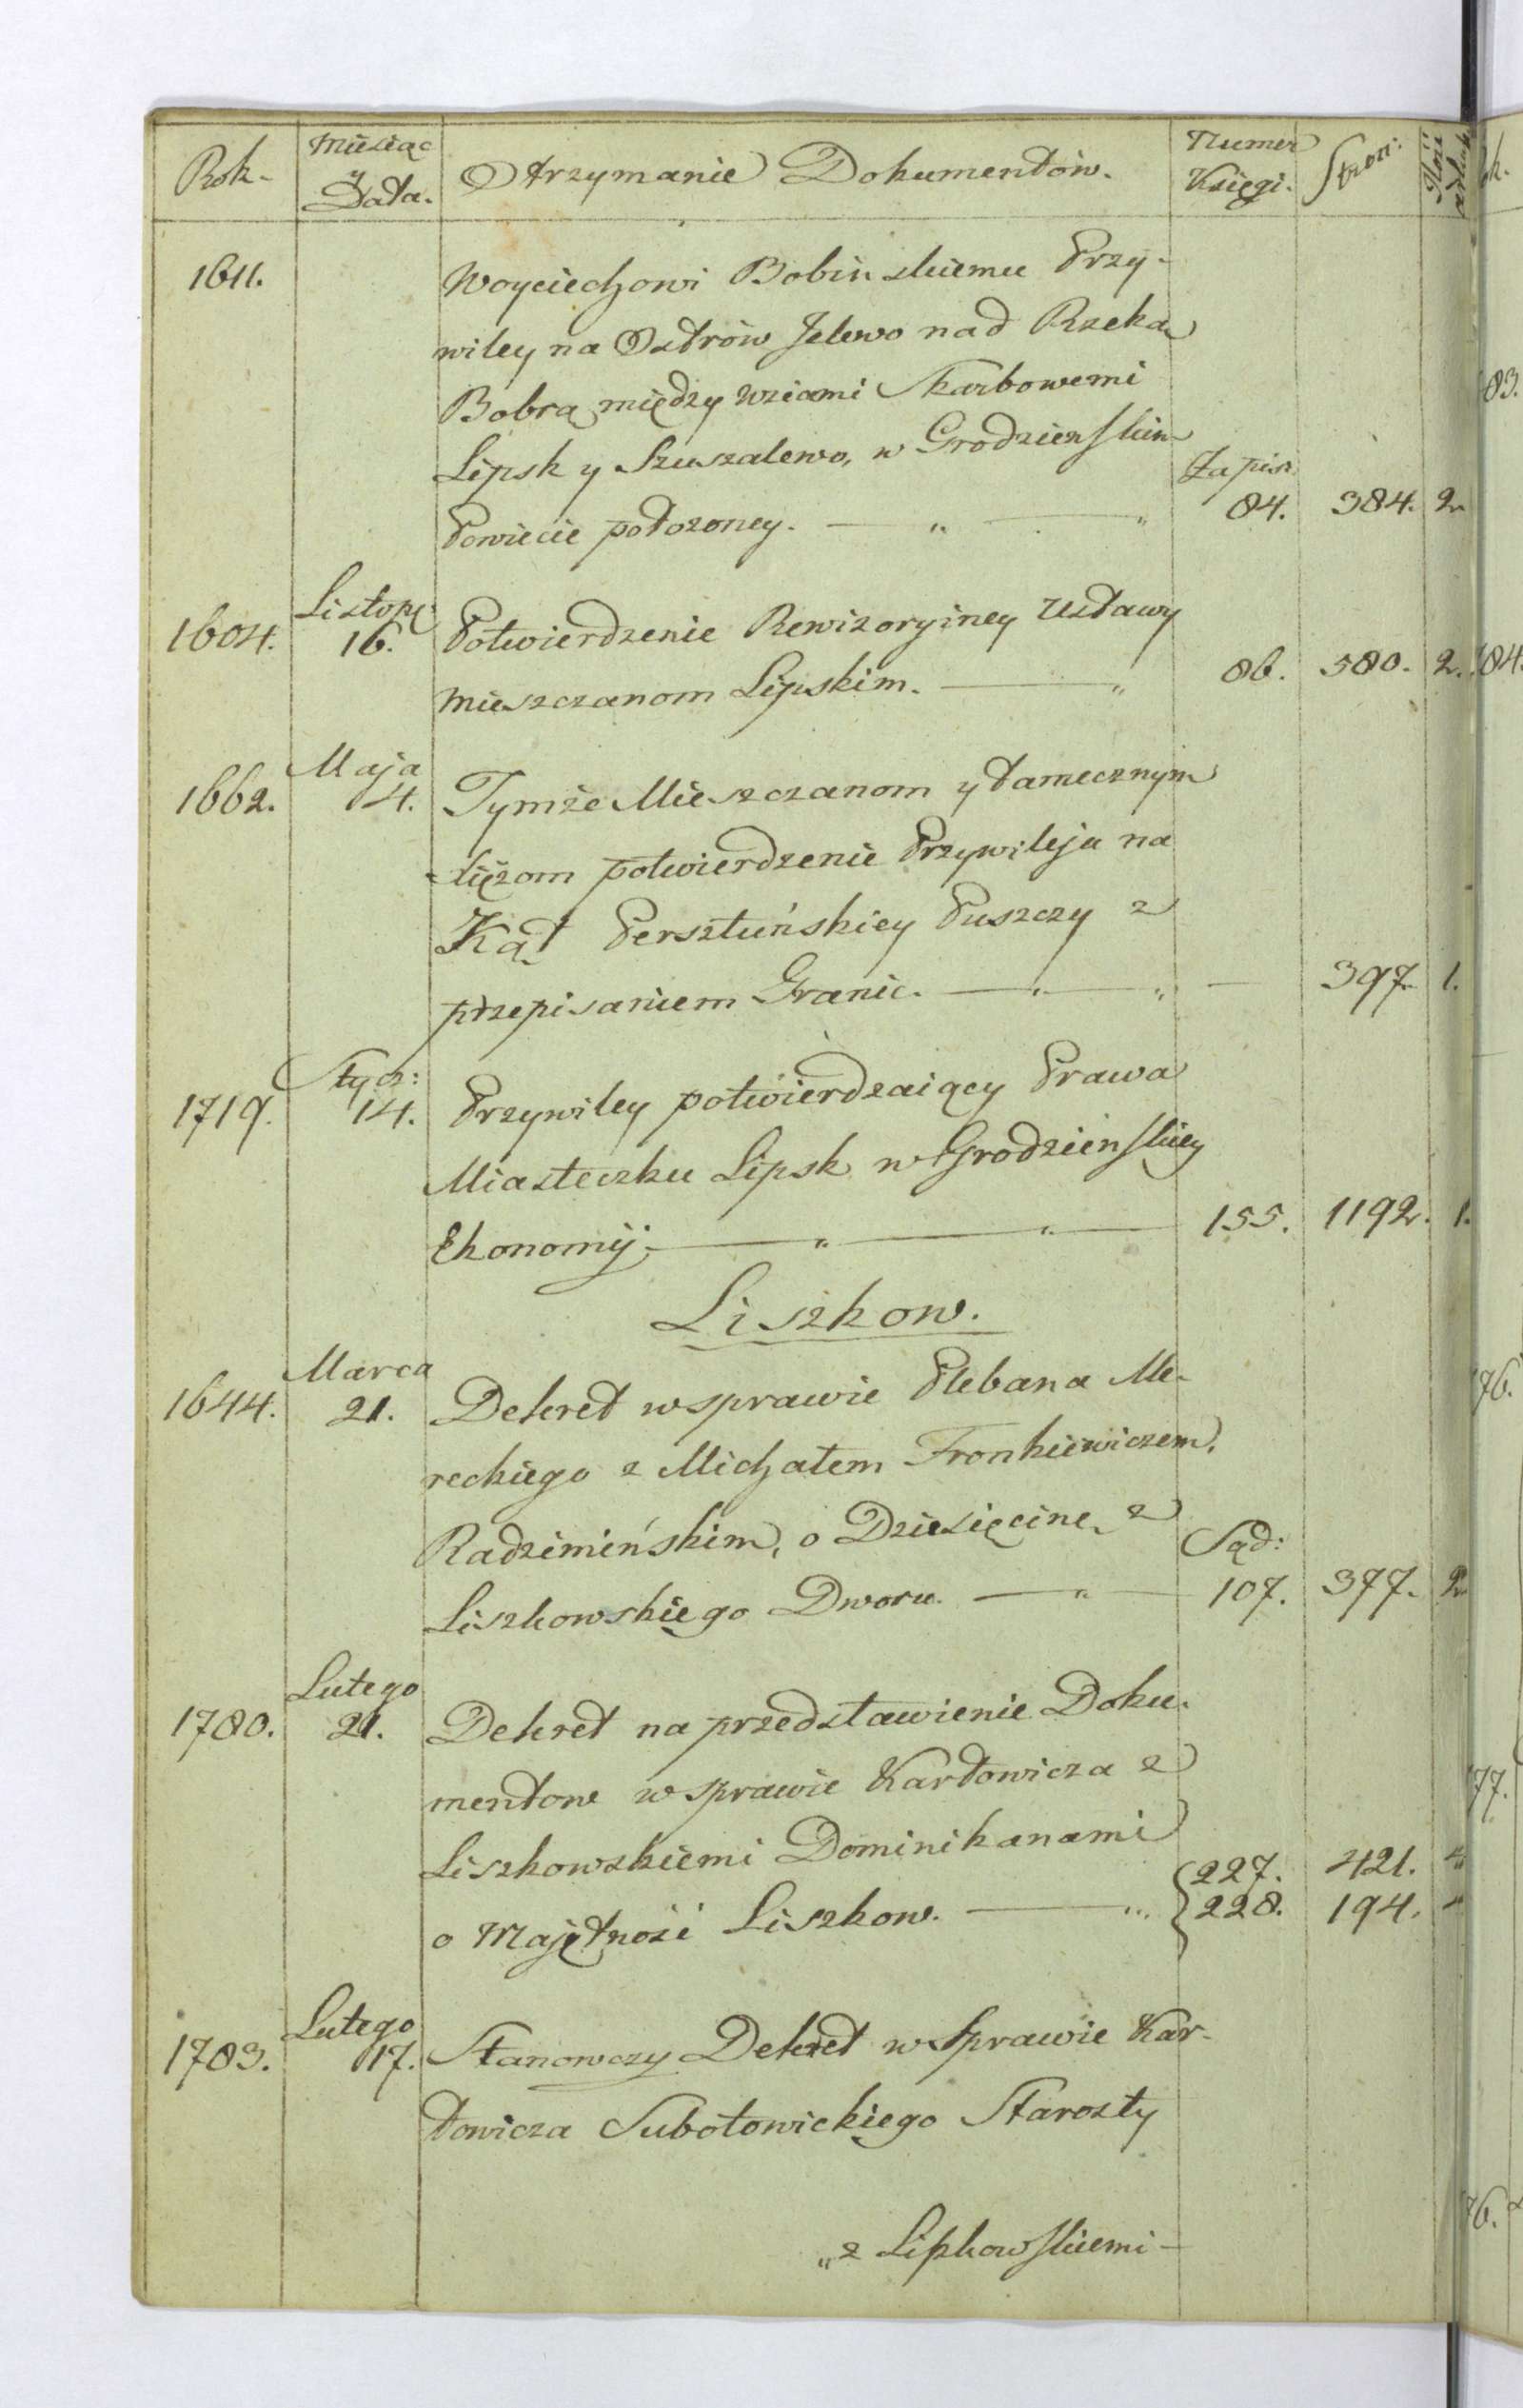 Rok. Miesiąc y Data. Otrzymanie Dokumentów. Numer Księgi. Stron: Ilość arkusz
1611. Woyciechowi Bobinskiemu Przy-
wiley na Ostrów Jelewo nad Rzeką
Bobrą między wsiami Skarbowemi
Lipsk y Szuszalewo, w Grodzienskim Zapis:
Powiecie położoney. 84. 384. 2.
Listop:
1604. 16. Potwierdzenie Rewizoryiney Ustawy
mieszczanom Lipskim. 86. 580. 2.
Maja
1662. 4. Tymże Mieszczanom y tamecznym
xiężom potwierdzenie Przywileju na
Kąt Persztuńskiey Puszczy z
przepisaniem Granic. — 397. 1.
Stycz:
1719. 14. Przywiley potwierdzaiący Prawa
Miasteczku Lipsk w Grodzienskiey
Ekonomij. 155. 1192. 1.
Liszkow.
Marca
1644. 21. Dekret w sprawie Plebana Me-
reckiego z Michałem Fronkiewiczem,
Radzimińskim, o Dziesięcinę z Sąd:
Liszkowskiego Dworu. 107. 377. 2.
Lutego
1780. 21. Dekret na przedstawienie Doku-
mentow w sprawie Karłowicza z
Liszkowskiemi Dominikanami 227. 421.
o Majętność Liszkow. 228. 194.
Lutego
1783. 17. Stanowczy Dekret w Sprawie Kar-
łowicza Subotowickiego Starosty
„z Liszkowskiemi